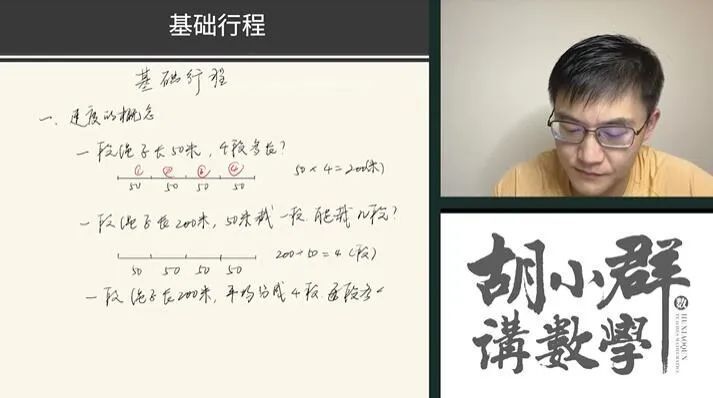 基础行程
基础行程
一、速度的概念
一段绳子长50米，4段多长？
① ② ③ ④
50 50 50 50
50×4=200(米)
一段绳子长200米，50米截一段，能截几段？
200÷50=4(段)
50 50 50 50
一段绳子长200米，平均分成4段 每段多
胡小群
講數學
數
HU XIAOQUN
TEACHES MATHEMATICS